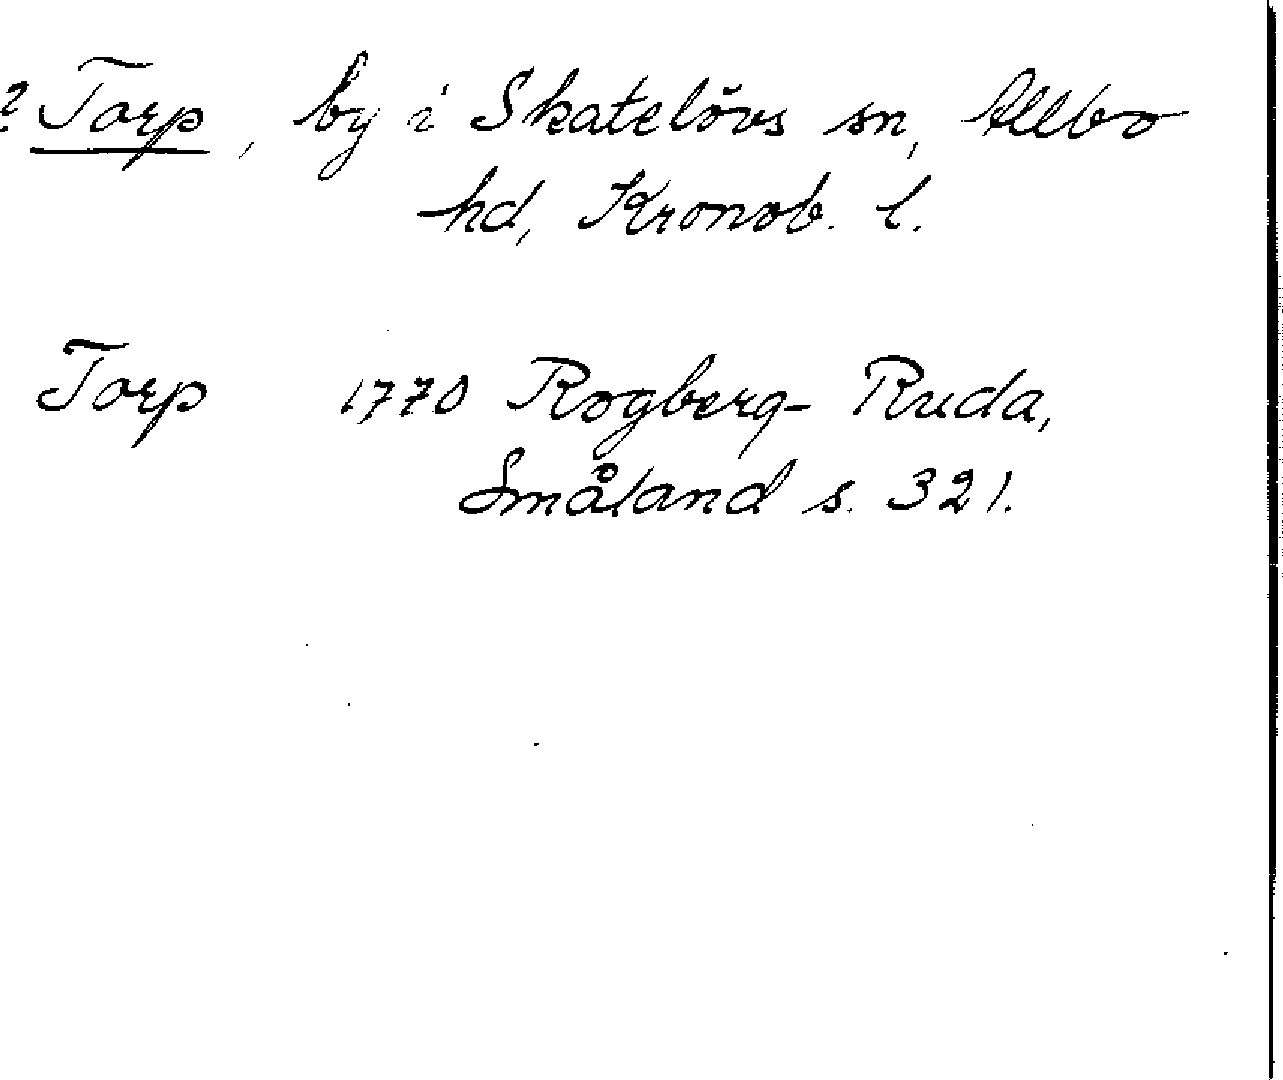 ? Torp, by i Skatelövs sn, Allbo
hd, Kronob. l.
Torp 1770 Rogberg-Ruda,
Småland s. 321.